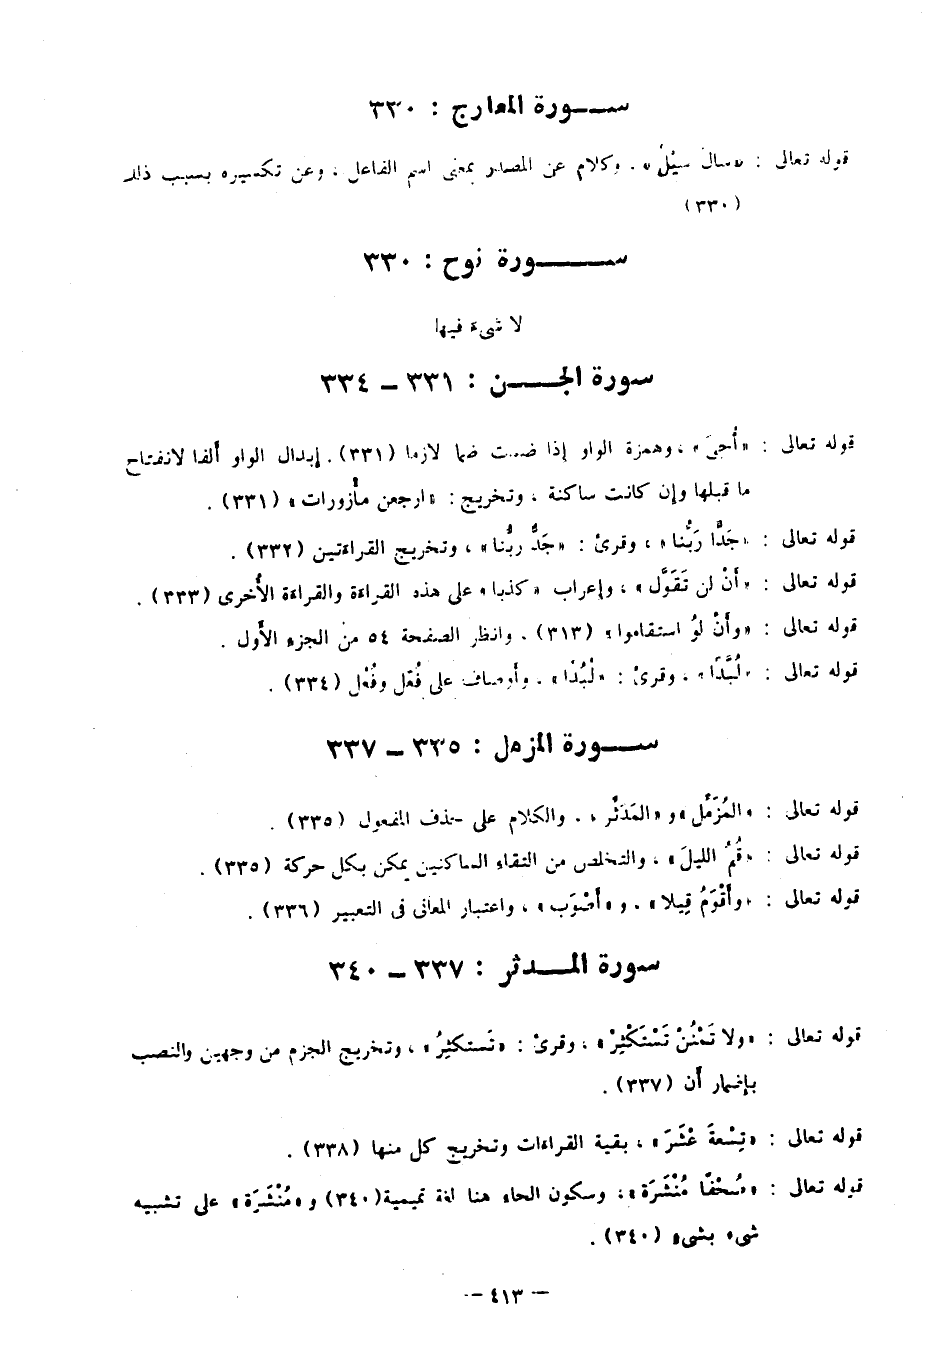 ســورة المعارج : ٣٣٠
قوله تعالى : «سالَ سَيْلٌ» . وكلام عن المصدر بمعنى اسم الفاعل ، وعن تكسيره بسبب ذلك
(٣٣٠)
ســـورة نوح : ٣٣٠
لا شىء فيها
سورة الجـــن : ٣٣١ – ٣٣٤
قوله تعالى : «أُحِىَ» ، وهمزة الواو إذا ضمت ضما لازما (٣٣١) . إبدال الواو ألفا لانفتاح
ما قبلها وإن كانت ساكنة ، وتخريج : «ارجعن مأْزورات» (٣٣١) .
قوله تعالى : «جَدًّا رَبُّنا» ، وقرئ : «جَدٌّ ربُّنا» ، وتخريج القراءتين (٣٣٢) .
قوله تعالى : «أَنْ لن تَقَوَّل» ، وإعراب «كذبا» على هذه القراءة والقراءة الأُخرى (٣٣٣) .
قوله تعالى : «وأَنْ لوُ استقاموا» (٣١٣) . وانظر الصفحة ٥٤ من الجزء الأَول .
قوله تعالى : «لُبَّدًا» ، وقرئ : «لُبُدًا» . وأَوصاف على فُعَّل وفُعُل (٣٣٤) .
ســورة المزمل : ٣٣٥ – ٣٣٧
قوله تعالى : «المُزَمِّل» و «المُدَثِّر» . والكلام على حذف المفعول (٣٣٥) .
قوله تعالى : «قُمُ الليلَ» ، والتخلص من التقاء الساكنين يمكن بكل حركة (٣٣٥) .
قوله تعالى : «وأَقْوَمُ قِيلا» . و «أَصْوَب» ، واعتبار المعانى فى التعبير (٣٣٦) .
سورة المــدثر : ٣٣٧ – ٣٤٠
قوله تعالى : «ولا تَمْنُنْ تَسْتَكْثِرْ» ، وقرئ : «تَستكثِرُ» ، وتخريج الجزم من وجهين والنصب
بإضمار أَن (٣٣٧) .
قوله تعالى : «تِسْعةَ عْشَرَ» ، بقية القراءات وتخريج كل منها (٣٣٨) .
قوله تعالى : «صُحْفًا مُنْشَرَة» ، وسكون الحاء هنا لغة تميمية (٣٤٠) و «مُنْشَرَة» على تشبيه
شىء بشىء (٣٤٠) .
– ٤١٣ –